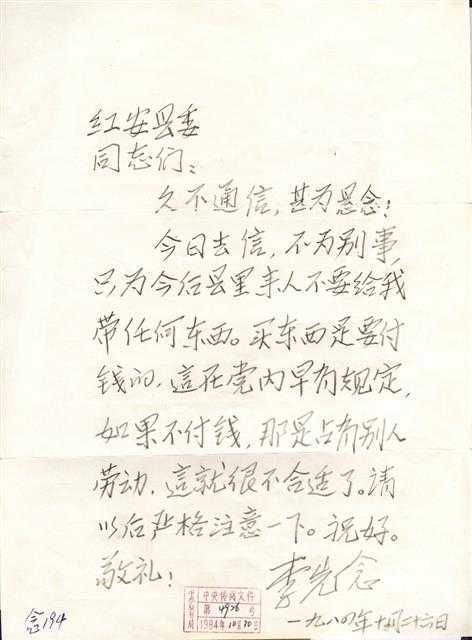 红安县委
同志们：
久不通信，甚为悬念！
今日去信，不为别事，
只为今后县里来人不要给我
带任何东西。买东西是要付
钱的，這在党内早有规定，
如果不付钱，那是占有别人
劳动，這就很不合适了。請
以后严格注意一下。祝好。
敬礼！
李先念
一九八四年十月二十六日
念194
中央传阅文件
第 4926 号
1984年10月30日